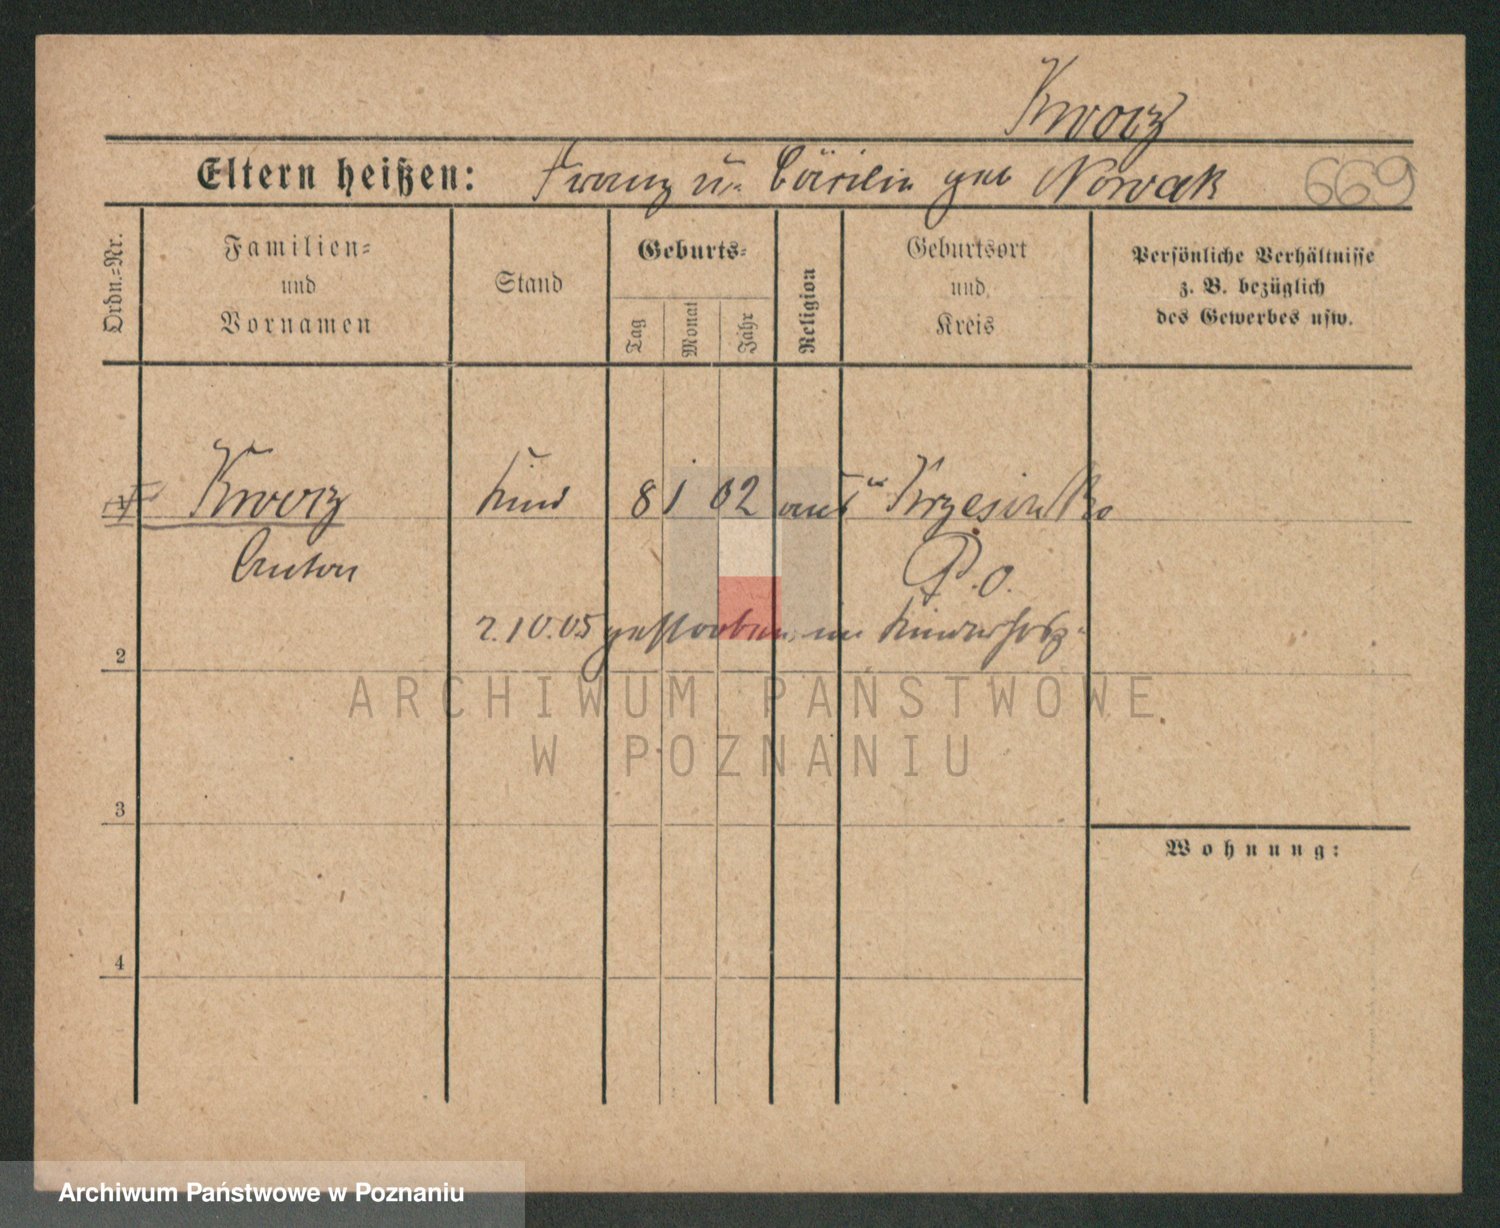 Kworz
Eltern heißen: Franz u. Cäcilia geb Nowak 669
Ordn.-Nr.
Familien-
und
Vornamen
Stand
Geburts-
Tag
Monat
Jahr
Religion
Geburtsort
und
Kreis
Persönliche Verhältnisse
z. B. bezüglich
des Gewerbes usw.
Kworz Kind 8 1 02 aus
Anton
P.O.
2.10.05 gestorben im
2
ARCHIWUM PAŃSTWOWE
W POZNANIU
3
Wohnung:
4
Archiwum Państwowe w Poznaniu